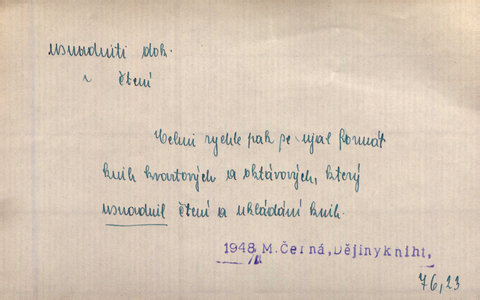 usnadniti dok.
~ čtení
Velmi rychle pak se ujal formát
knih kvartových a oktávových, který
usnadnil čtení a ukládání knih.
1948 M. Černá, Dějiny kniht,
76,23